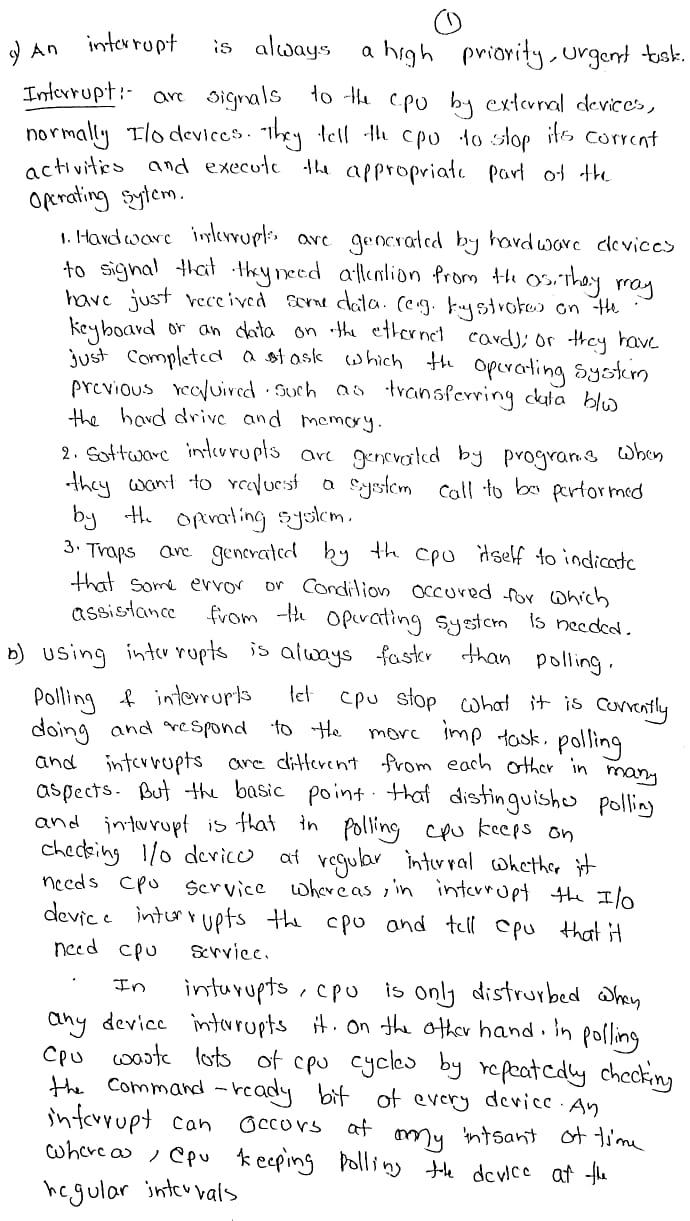 ①
a) An interrupt is always a high priority, urgent task.
Interrupt:- are signals to the cpu by external devices,
normally I/o devices. They tell the cpu to stop its current
activities and execute the appropriate part of the
Operating sytem.
1. Hardware interrupts are generated by hardware devices
to signal that they need attention from the os. They may
have just received some data. (e.g. kystrokes on the
keyboard or an data on the ethernet card); or they have
just completed a stask which the operating system
previous required. such as transferring data b/w
the hard drive and memory.
2. Software interrupts are generated by programs when
they want to request a system call to be performed
by the operating system.
3. Traps are generated by the cpu itself to indicate
that some error or condition occured for which
assistance from the operating system is needed.
b) using interrupts is always faster than polling.
Polling & interrupts let cpu stop what it is currently
doing and respond to the more imp task. polling
and interrupts are different from each other in many
aspects. But the basic point. that distinguishes polling
and interrupt is that in polling cpu keeps on
checking I/o devices at regular interval whether it
needs cpu service whereas, in interrupt the I/o
device interrupts the cpu and tell cpu that it
need cpu service.
In interrupts, cpu is only distrurbed when
any device interrupts it. on the other hand. in polling
cpu waste lots of cpu cycles by repeatedly checking
the command-ready bit of every device. An
interrupt can occurs at any intsant of time
whereas, cpu keeping polling the device at the
regular intervals